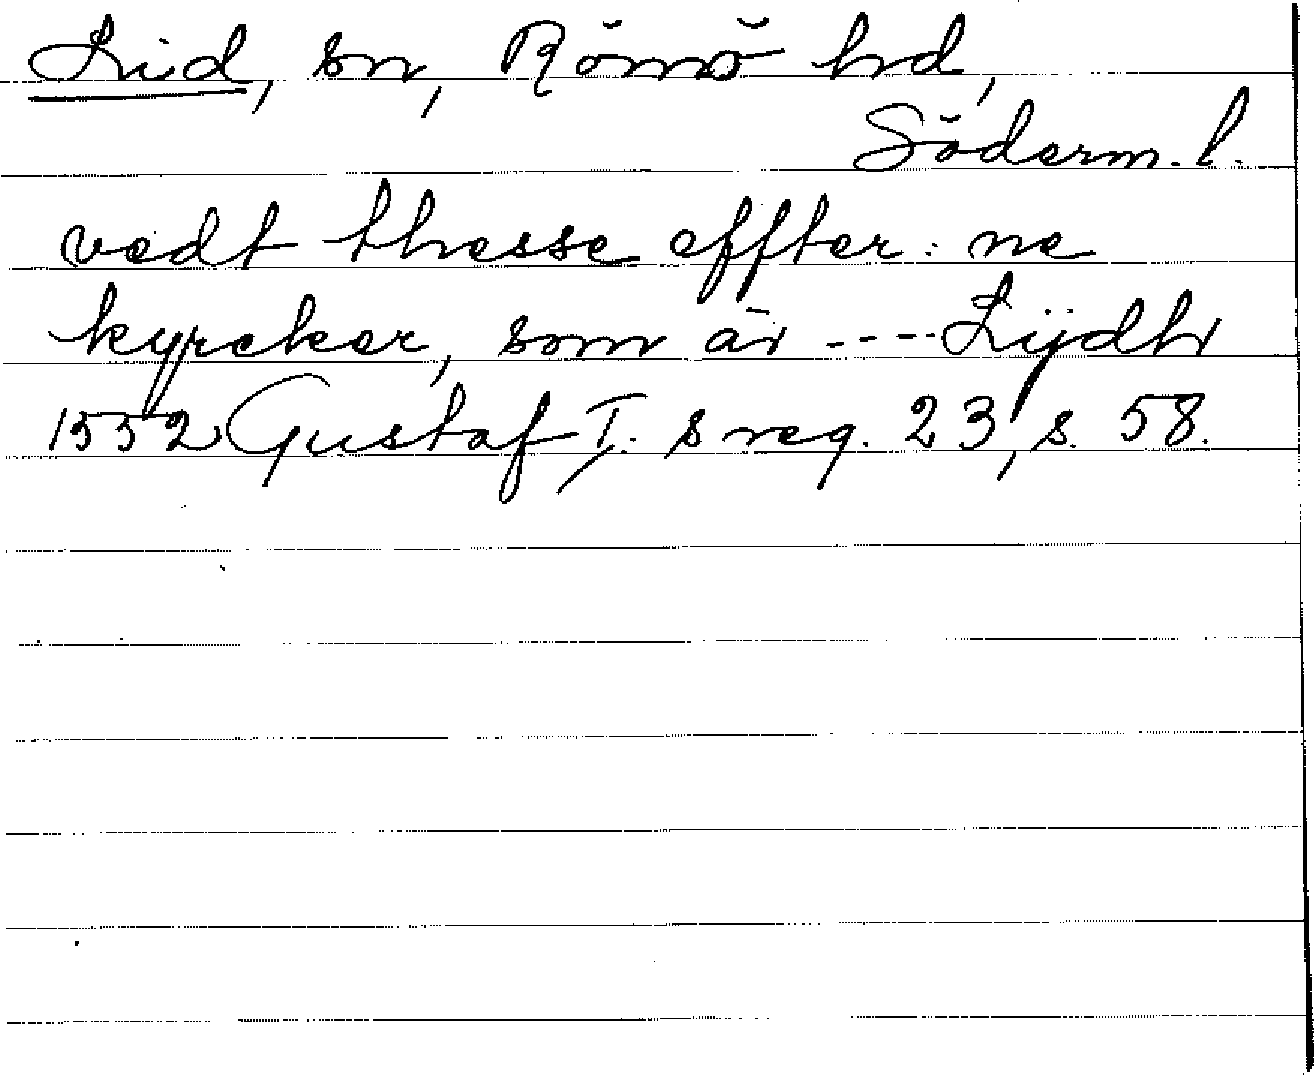 Lid, sn, Rönö hd,
Söderm. l.
vedt thesse effter: ne
kyrcker, som är ---- Lijdh
1552 Gustaf I. s reg. 23, s. 58.